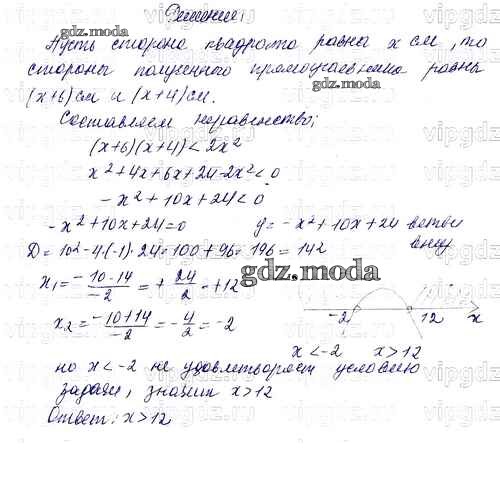 Решение:
Пусть сторона квадрата равна x см, то
стороны полученного прямоугольника равны
(x+6) см и (x+4) см.
Составляем неравенство:
(x+6)(x+4) < 2x²
x²+4x+6x+24-2x²<0
-x²+10x+24<0
-x²+10x+24=0 y=-x²+10x+24 ветви
вниз
D=10²-4·(-1)·24=100+96=196=14²
x₁=(-10-14)/-2=+24/2=+12
x₂=(-10+14)/-2=-4/2=-2
-2 12 x
x<-2 x>12
но x<-2 не удовлетворяет условию
задачи, значит x>12
Ответ: x>12
gdz.moscow
gdz.moscow
gdz.moscow
gdz.moscow
vipgdz.ru